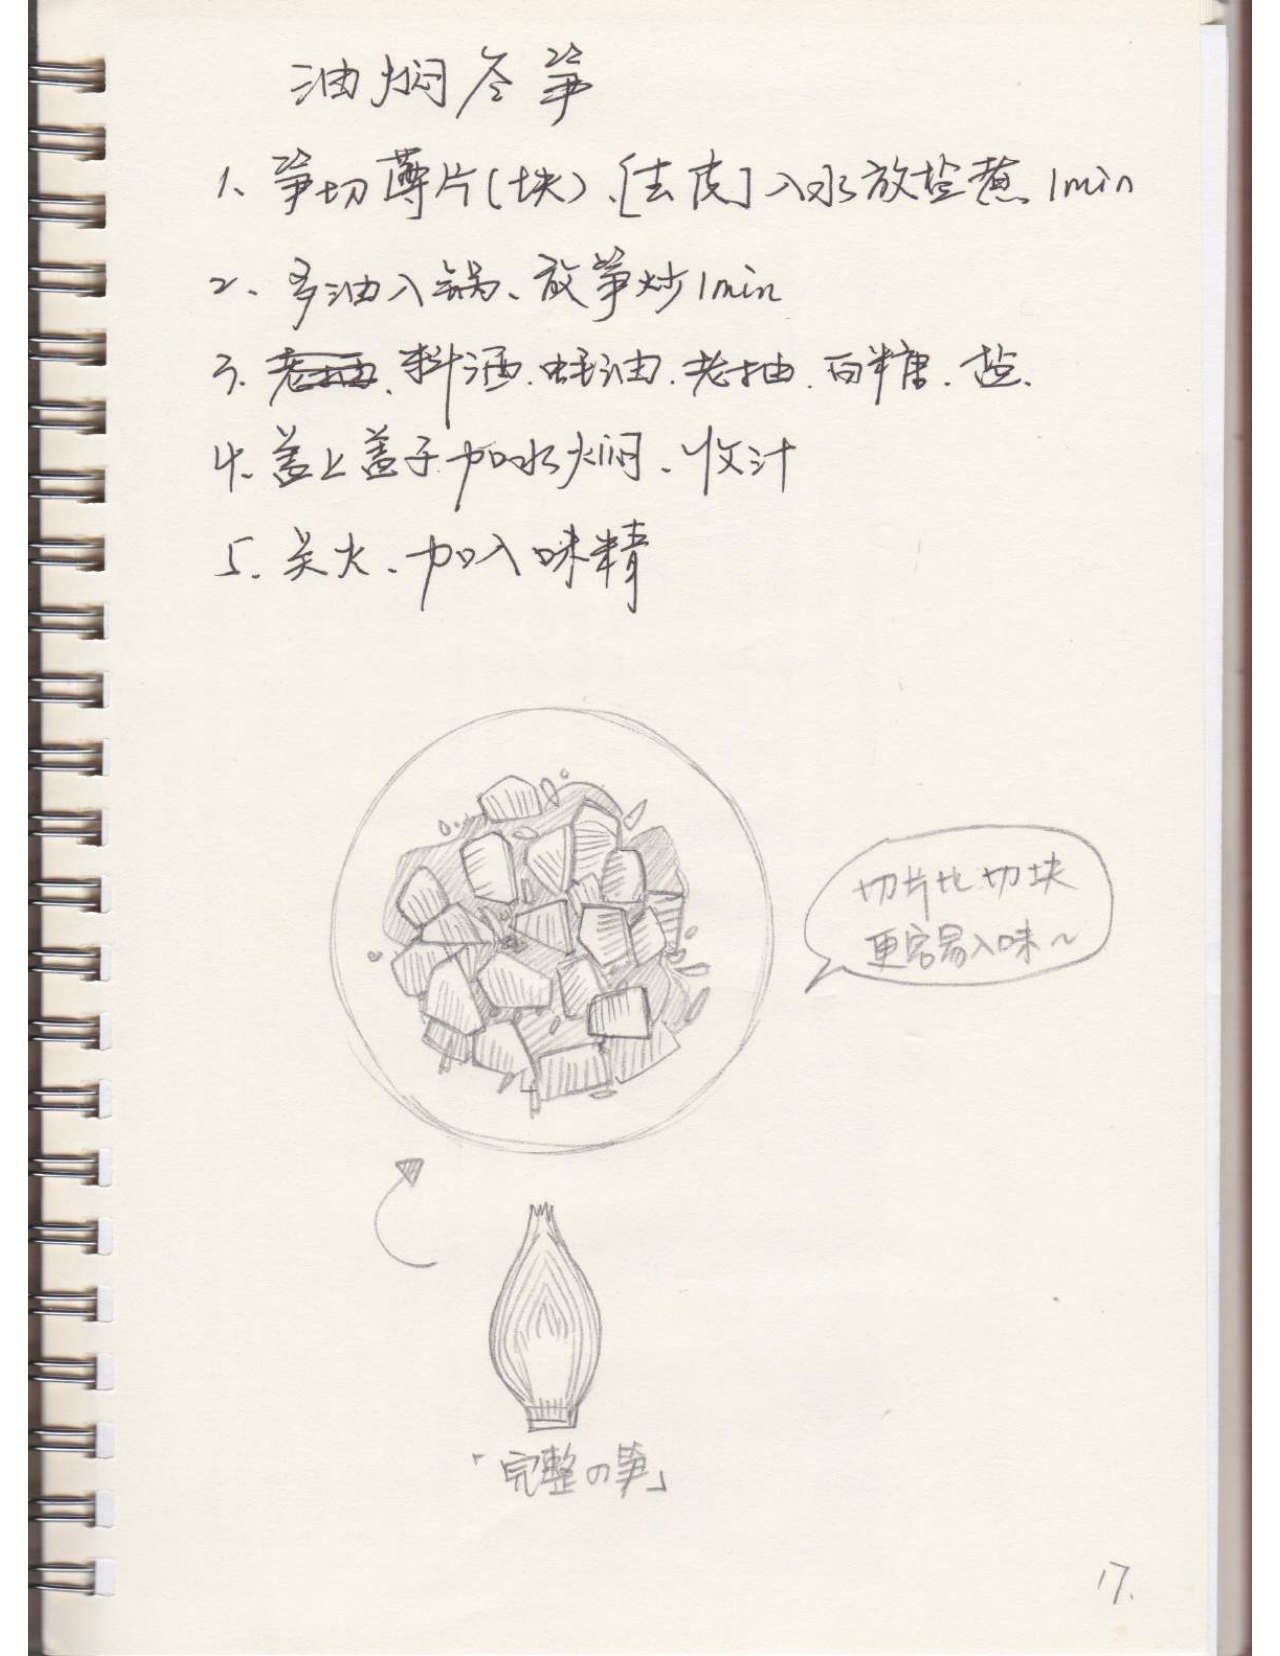 油焖冬笋
1、笋切薄片(块)、[去皮]入水放盐煮1min
2、多油入锅、放笋炒1min
3、老抽、料酒、蚝油、老抽、白糖、盐.
4、盖上盖子加水焖、收汁
5、关火、加入味精
切片比切块
更容易入味~
「完整の笋」
17.